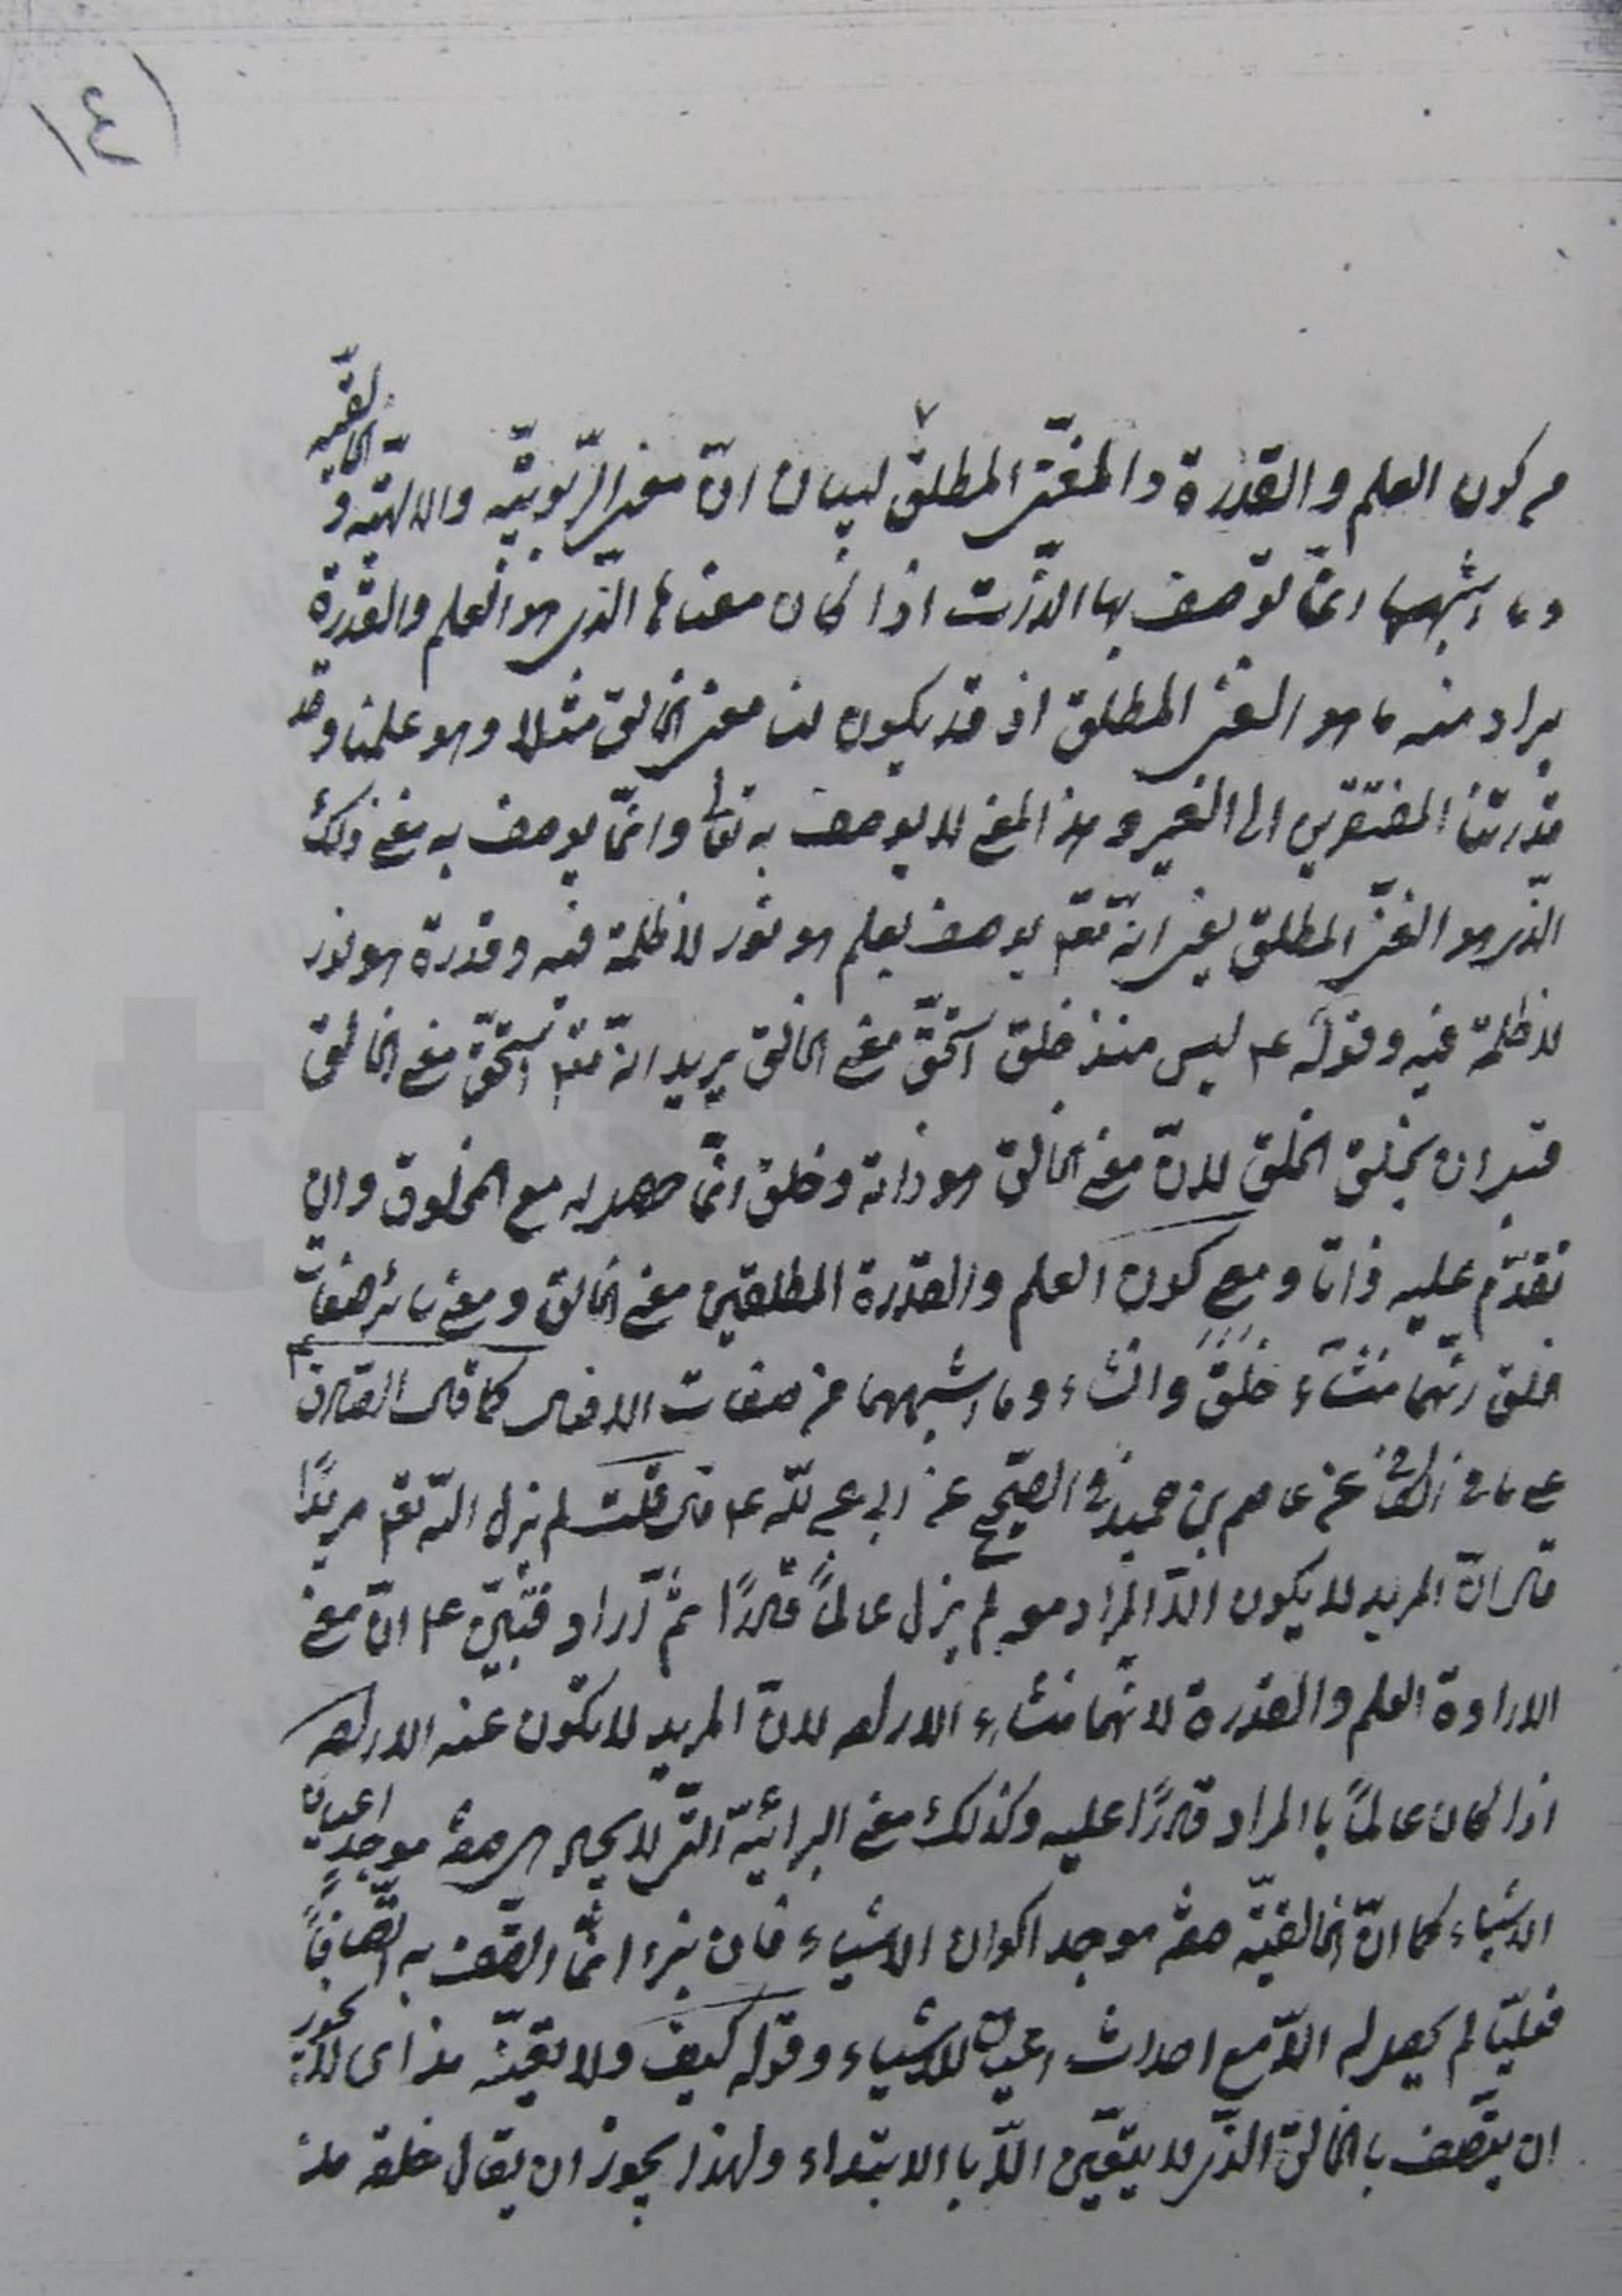 (١٤
من كون العلم والقدرة والغنى المطلق لبيان انّ معنى الربوبيّه والالهيّه و الخالقيّه
وما اشبهها انّما توصف بها الذات اذا كان معناها الذى هو العلم والقدرة
يراد منه ما هو الغنى المطلق اذ قد يكون لنا معنى الخالق مثلا وهو علمنا وقد
قدرتنا المفتقرين الى الغير وهذا المعنى لا يوصف به تعالى وانّما يوصف به معنى ذلك
الذى هو الغنى المطلق يعنى انّه تعم يوصف بعلم هو نور لا ظلمة فيه وقدرة هو نور
لا ظلمة فيه وقوله ع ليس منذ خلق استحقّ معنى الخالق يريد انّه تعم استحقّ معنى الخالق
قبل ان يخلق الخلق لانّ معنى الخالق هو ذاته وخلق انّما حصل له مع المخلوق وان
تقدّم عليه ذاتا ومع كون العلم والقدرة المطلقين معنى الخالق ومعنى سائر صفات
الخلق انّهما منشاء خَلَقَ وانشاء وما اشبههما من صفات الافعال كما قال الصادق ع
على ما فى الكافى عن عاصم بن حميد فى الصحيح عن ابى عبد الله ع قال قلت لم يزل الله تعم مريدًا
قال انّ المريد لا يكون الّا المراد معه لم يزل عالمًا قادرًا ثمّ اراد فبيّن ع انّ معنى
الارادة العلم والقدرة لانّهما منشاء الاراده لانّ المريد لا يكون عنه الاراده
اذا كان عالمًا باالمراد قادرًا عليه وكذلك معنى البرائيّه الّتى لا يحال هى صفة موجد اعيان
الاشياء كما انّ الخالقيّه صفة موجد اكوان الاشياء فان برء انّما اتّصف به اتّصافًا
فعليّا لم يحصل له الّا مع احداث اعيان الاشياء وقوله كيف ولا تغيّبه مذ اى لا يجوز
ان يتّصف بالخالق الذى لا يتعيّن الّا باالابتداء ولهذا يجوز ان يقال خلقه مذ